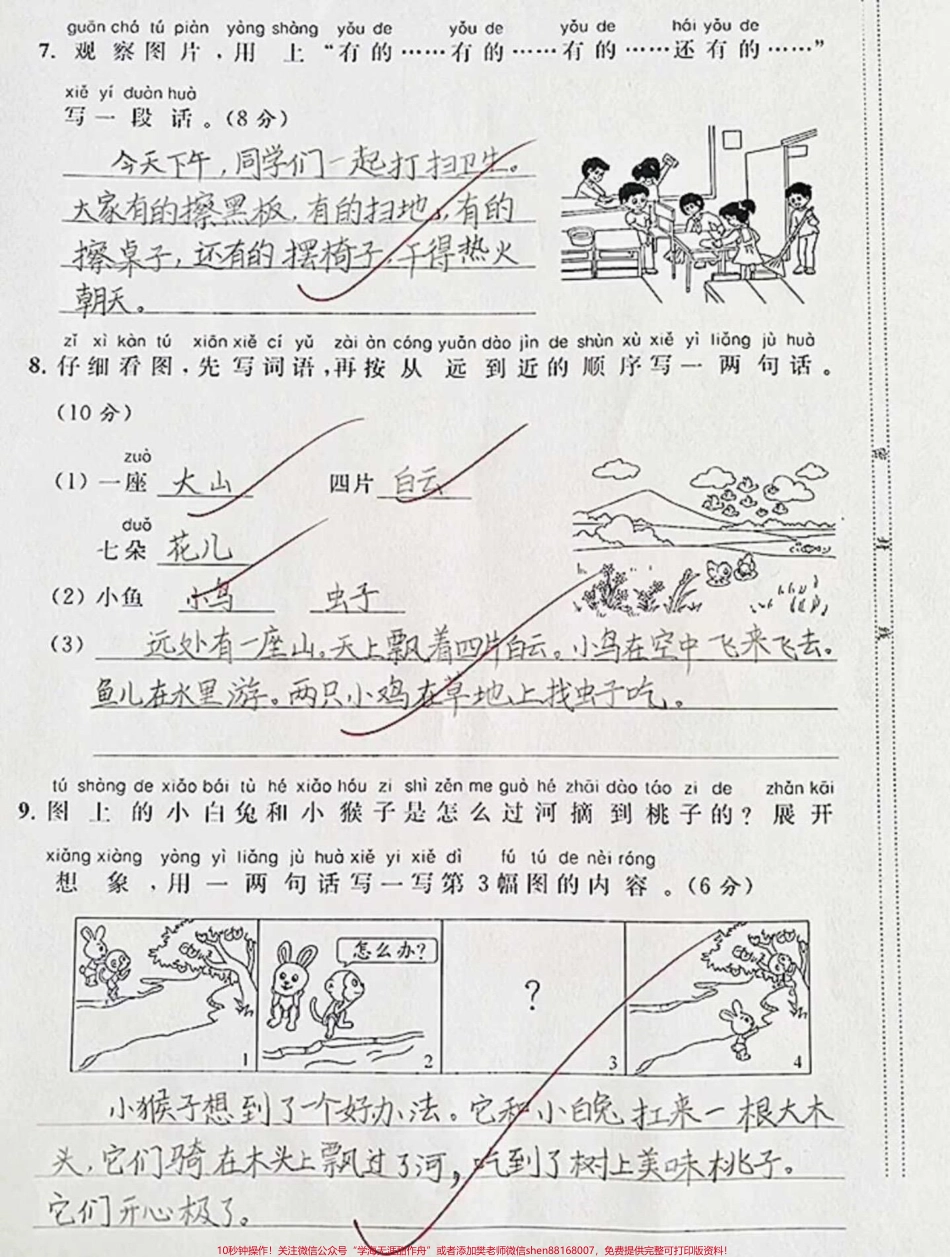 guān chá tú piàn yòng shàng yǒu de yǒu de yǒu de hái yǒu de
7. 观察图片，用上“有的……有的……有的……还有的……”
xiě yí duàn huà
写一段话。（8分）
今天下午，同学们一起打扫卫生。
大家有的擦黑板，有的扫地，有的
擦桌子，还有的摆椅子，干得热火
朝天。
zǐ xì kàn tú xiān xiě cí yǔ zài àn cóng yuǎn dào jìn de shùn xù xiě yì liǎng jù huà
8. 仔细看图，先写词语，再按从远到近的顺序写一两句话。
（10分）
zuò
（1）一座 大山 四片 白云
duǒ
七朵 花儿
（2）小鱼 小鸟 虫子
（3） 远处有一座山。天上飘着四片白云。小鸟在空中飞来飞去。
鱼儿在水里游。两只小鸡在草地上找虫子吃。
tú shàng de xiǎo bái tù hé xiǎo hóu zi shì zěn me guò hé zhāi dào táo zi de zhǎn kāi
9. 图上的小白兔和小猴子是怎么过河摘到桃子的？展开
xiǎng xiàng yòng yì liǎng jù huà xiě yi xiě dì fú tú de nèi róng
想象，用一两句话写一写第3幅图的内容。（6分）
怎么办？
?
1 2 3 4
小猴子想到了一个好办法。它和小白兔扛来一根大木
头，它们骑在木头上飘过了河，吃到了树上美味桃子。
它们开心极了。
10秒钟操作！关注微信公众号“学海无涯品作舟”或者添加樊老师微信shen88168007，免费提供完整可打印版资料！